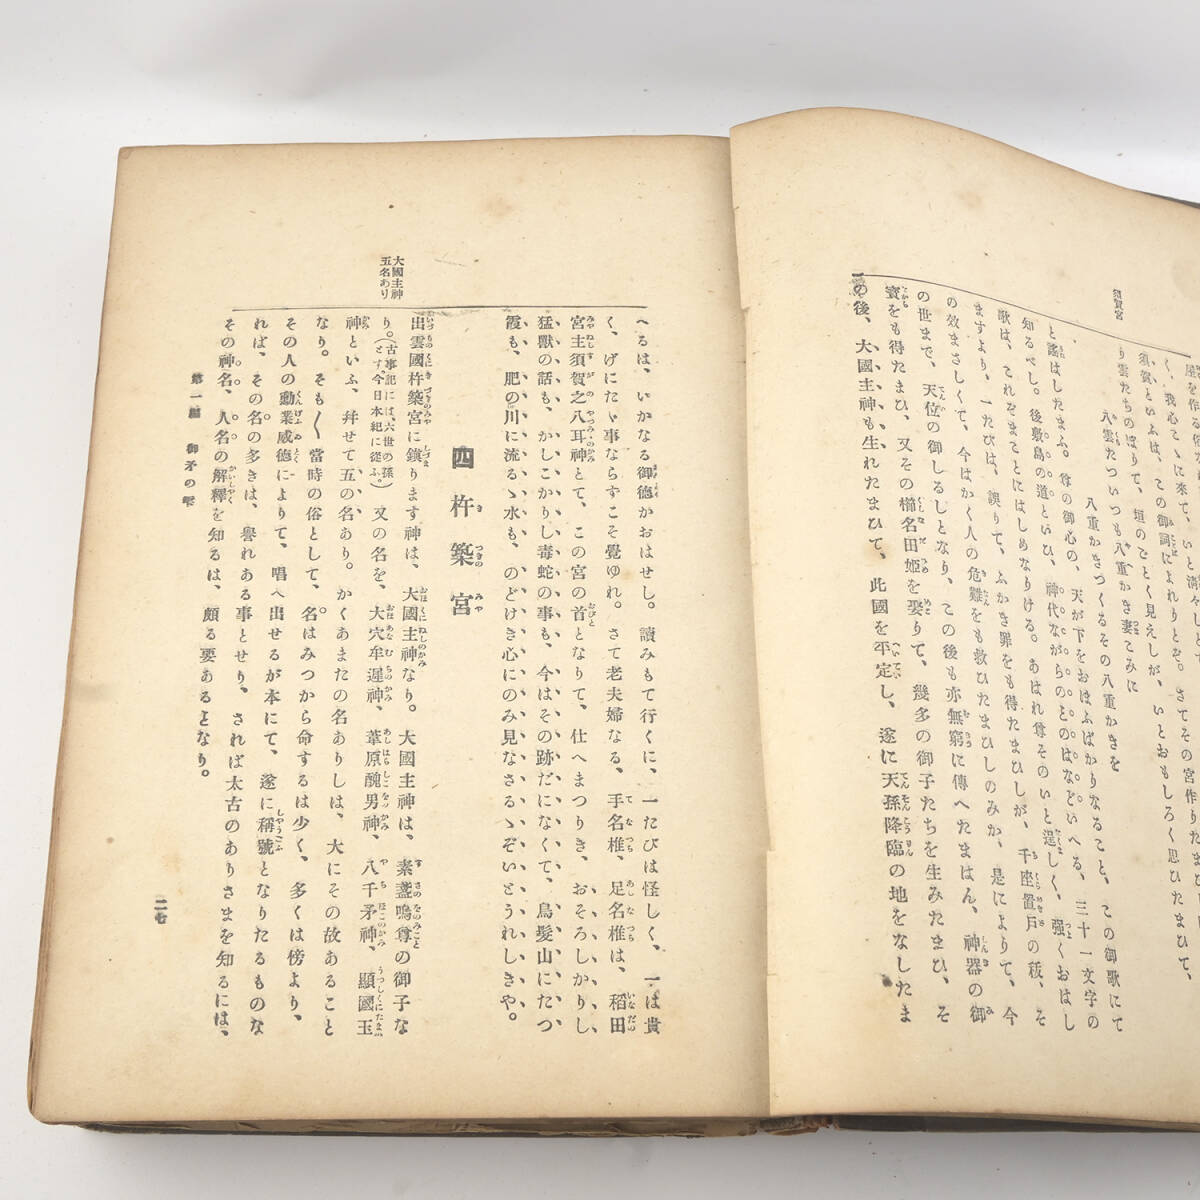 須賀宮
く、我心こゝに來て、いと淸々しとて
須賀といふは、この御詞によれりとぞ。さてその宮作りたまひし
り雲たちのぼりて、垣のごとく見えしが、いとおもしろく思ひたまひて
八雲たついつも八重がき妻ごみに
八重がきつくるその八重がきを
と謠はしたまふ。尊の御心の、天が下をおほふばかりなること、この御歌にて
知るべし。後敷島の道といひ、神代ながらのことのはなどいへる、三十一文字の
歌は、これぞまことにはじめなりける。あはれ尊そのいと逞しく、强くおはし
ますより、一たびは、誤りて、ふかき罪をも得たまひしが、千座置戶の祓、そ
の效まさしくて、今はかく人の危難をも救ひたまひしのみか、是によりて、今
の世まで、天位の御しるしとなり、この後も亦無窮に傳へたまはん、神器の御
寶をも得たまひ、又その櫛名田姬を娶りて、幾多の御子たちを生みたまひ、そ
の後、大國主神も生れたまひて、此國を平定し、遂に天孫降臨の地をなしたま
へるは、いかなる御德かおはせし。讀みもて行くに、一たびは怪しく、一は貴
く、げにたゞ事ならずこそ覺ゆれ。さて老夫婦なる、手名椎、足名椎は、稻田
宮主須賀之八耳神とて、この宮の首となりて、仕へまつりき、おそろしかりし
猛獸の話も、かしこかりし毒蛇の事も、今はその跡だになくて、鳥髮山にたつ
霞も、肥の川に流るゝ水も、のどけき心にのみ見なさるゝぞいとうれしきや。
四 杵築宮
大國主神
五名あり
出雲國杵築宮に鎭ります神は、大國主神なり。大國主神は、素盞嗚尊の御子な
り。(古事記には、六世の孫とす。今日本紀に從ふ)又の名を、大穴牟遲神、葦原醜男神、八千矛神、顯國玉
神といふ、幷せて五の名あり。かくあまたの名ありしは、大にその故あること
なり。そも〱當時の俗として、名はみつから命するは少く、多くは傍より、
その人の勳業威德によりて、唱へ出せるが本にて、遂に稱號となりたるものな
れば、その名の多きは、譽れある事とせり、されば太古のありさまを知るには、
その神名、人名の解釋を知るは、頗る要あるとなり。
第一編 御矛の雫
二七